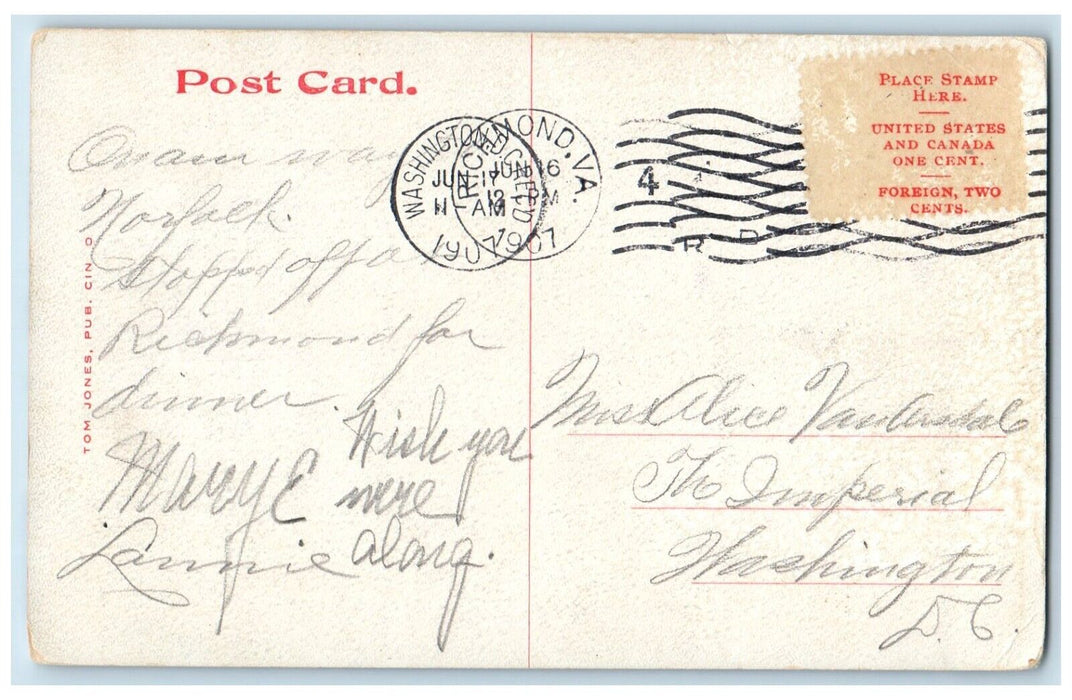 Post Card.
PLACE STAMP
HERE.
UNITED STATES
AND CANADA
ONE CENT.
FOREIGN, TWO
CENTS.
RICHMOND, VA.
JUN 16
PM
1907
WASHINGTON
JU 17
11 AM
1907
4
R D
TOM JONES, PUB. CIN O
On our way
Norfolk.
Stopped off a
Richmond for
dinner.
Mary E
Lannie
Wish you
were
along.
Miss Alice VanArsdale
The Imperial
Washington
D.C.